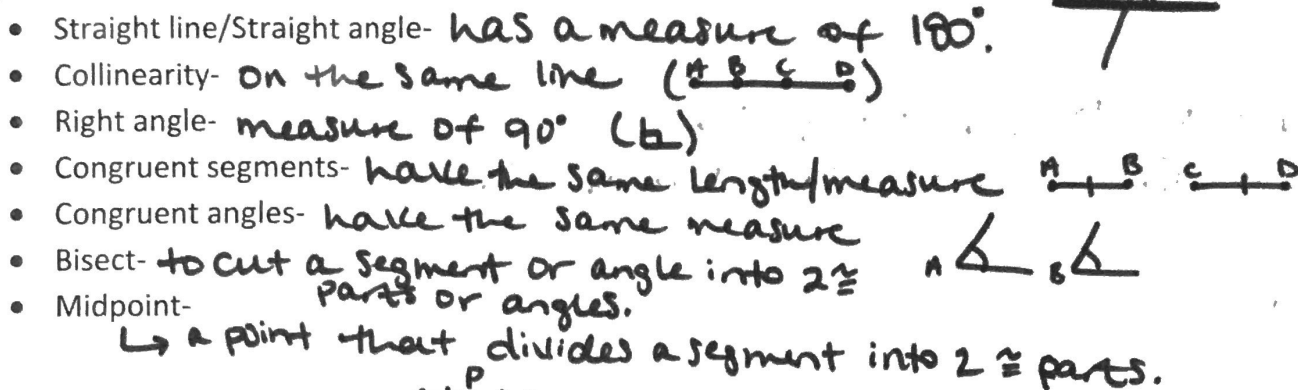 • Straight line/Straight angle- has a measure of 180°.
• Collinearity- on the same line (A B C D)
• Right angle- measure of 90° (b)
• Congruent segments- have the same length/measure A B C D
• Congruent angles- have the same measure
• Bisect- to cut a segment or angle into 2 ≅ A B
parts or angles.
• Midpoint-
↳ a point that divides a segment into 2 ≅ parts.
P